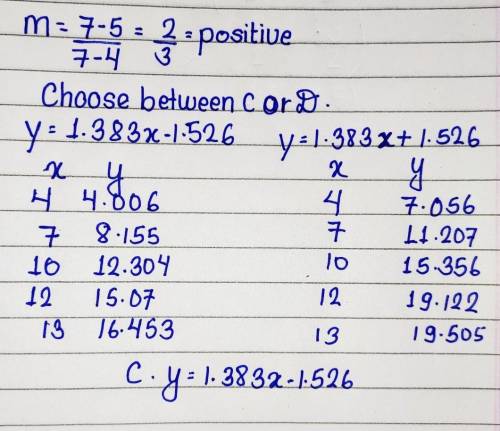 m = 7-5 = 2 = positive
7-4 3
Choose between C or D.
y = 1.383x - 1.526 y = 1.383x + 1.526
x y x y
4 4.006 4 7.056
7 8.155 7 11.207
10 12.304 10 15.356
12 15.07 12 19.122
13 16.453 13 19.505
C. y = 1.383x - 1.526